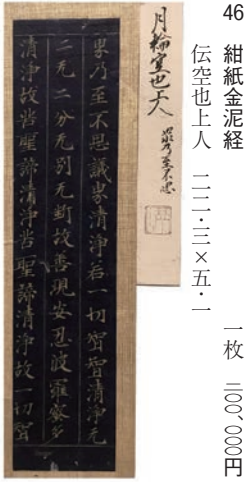 46 紺紙金泥経 一枚 二〇〇、〇〇〇円
伝空也上人 二二・三×五・一
月輪空也上人 界乃至不思
界乃至不思議界清淨若一切智智清淨无
二无二分无別无斷故善現安忍波羅蜜多
清淨故苦聖諦清淨苦聖諦清淨故一切智